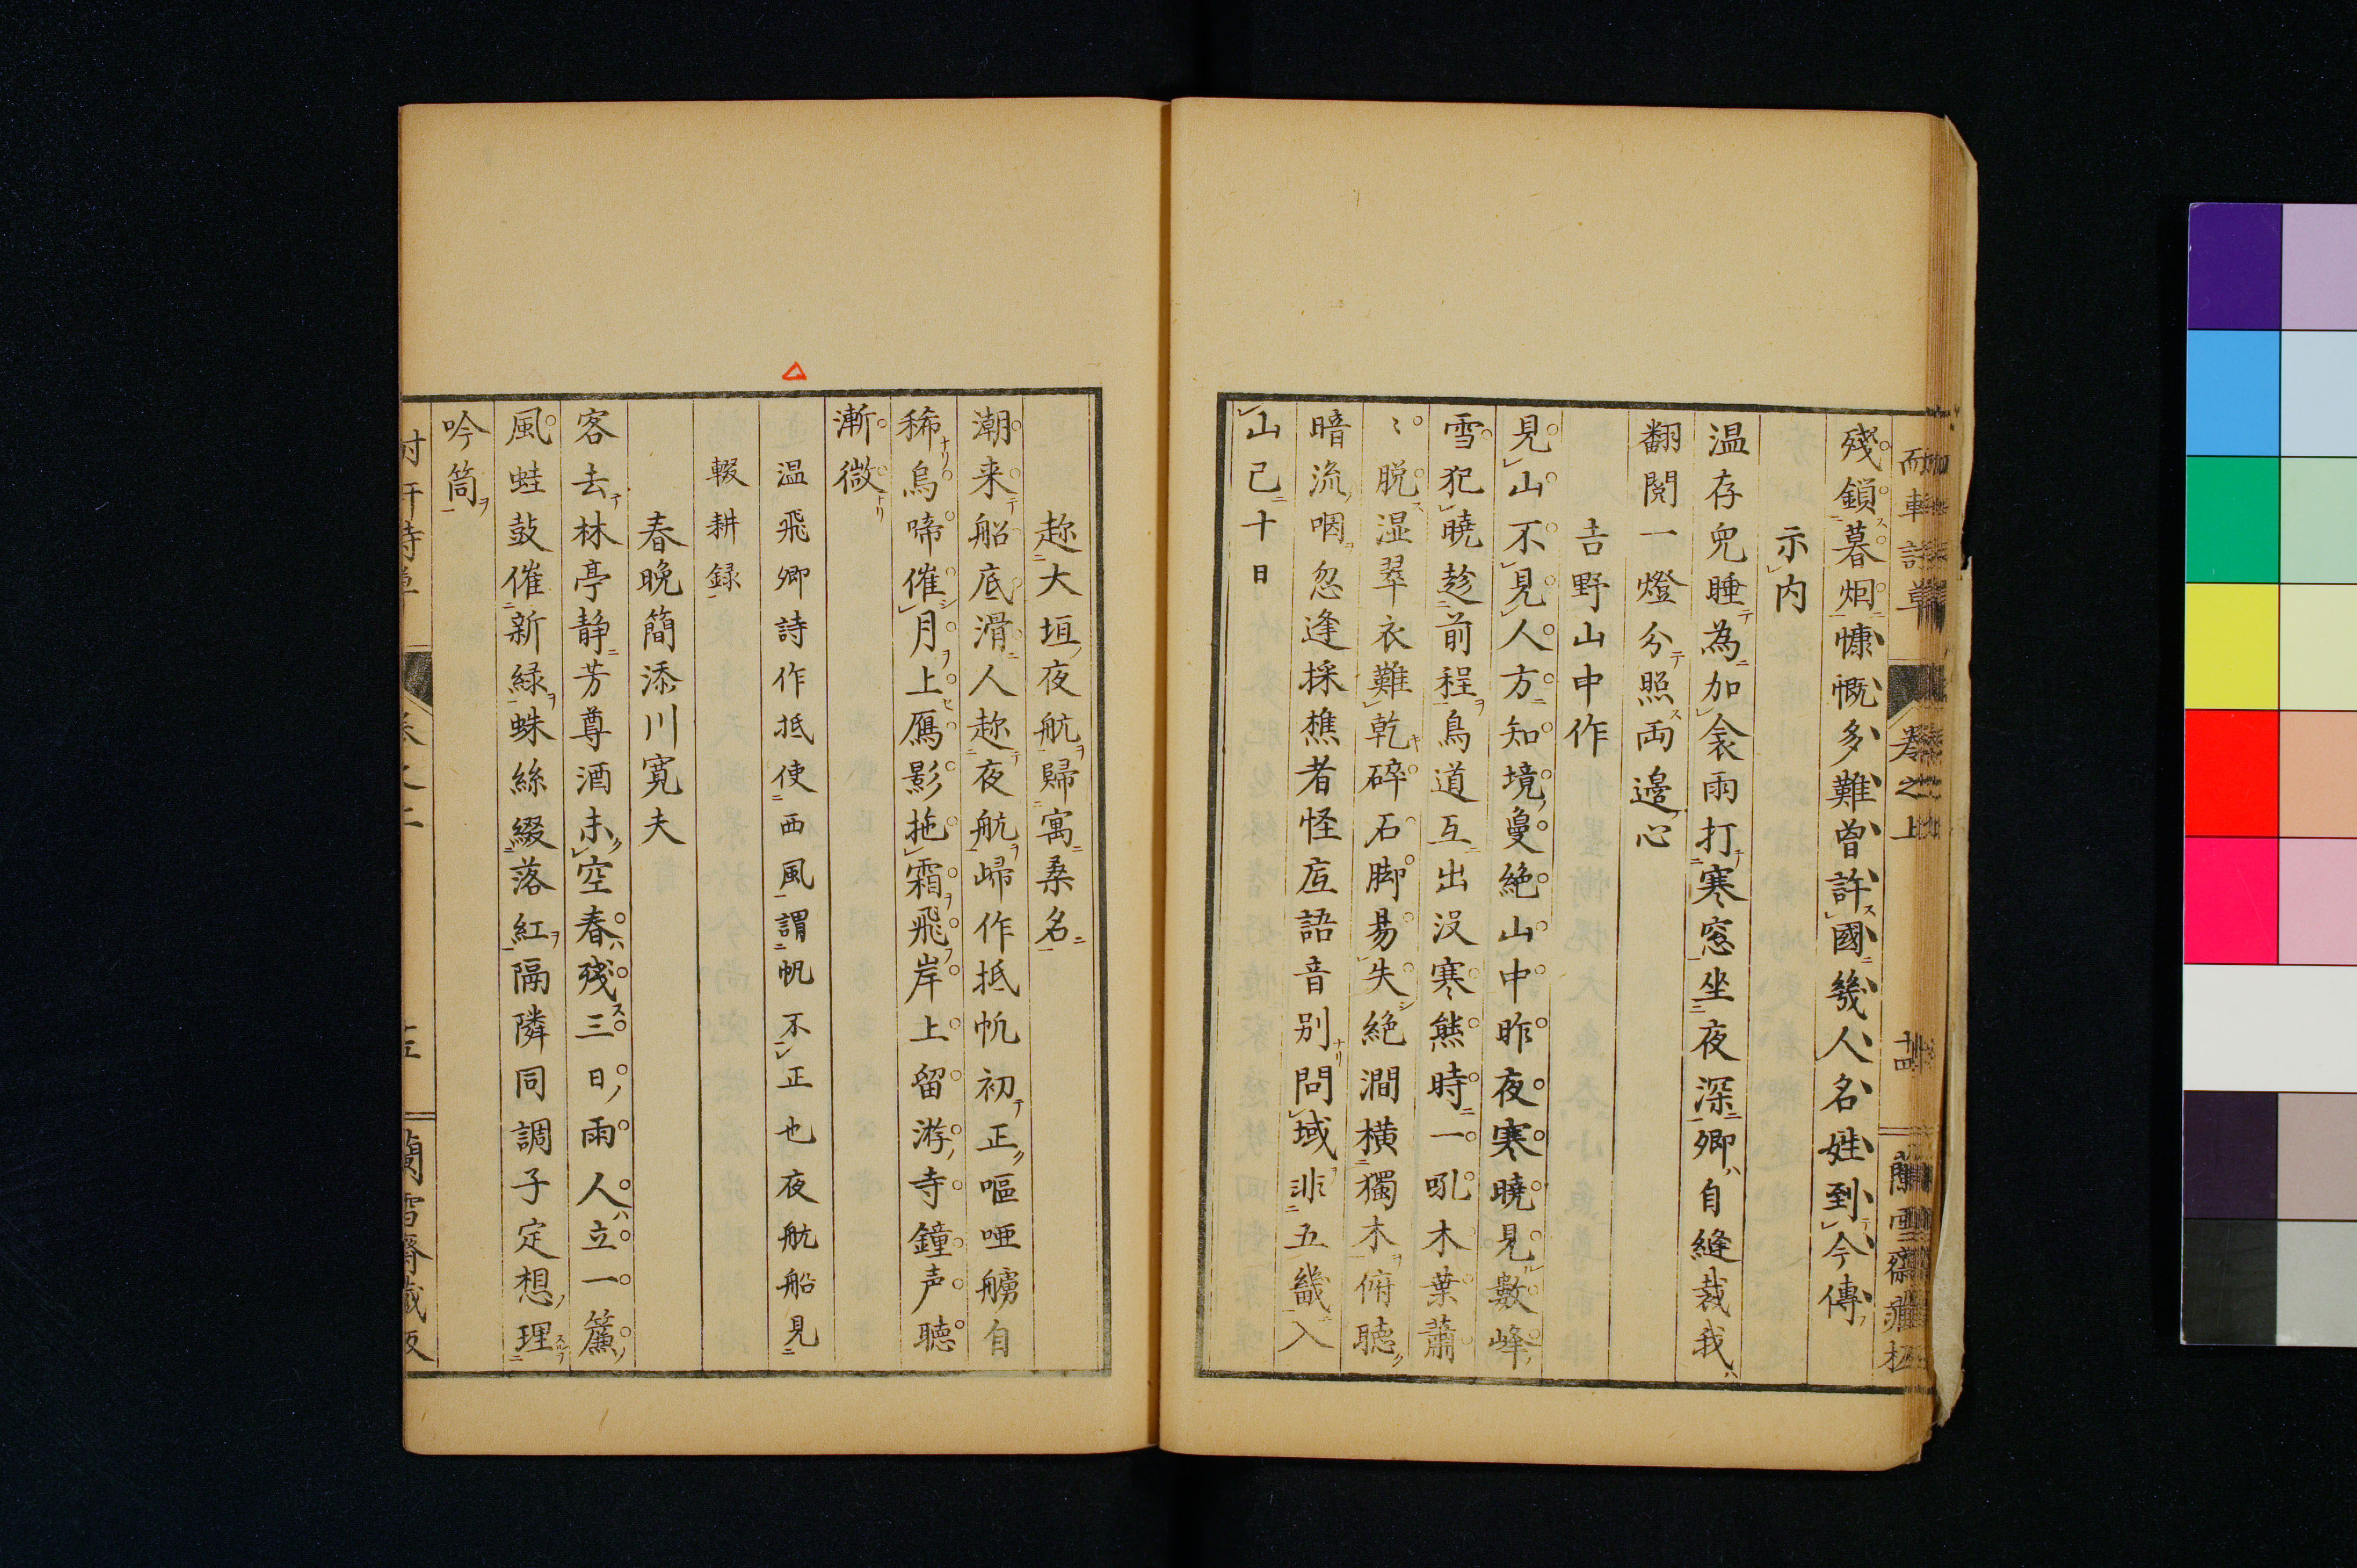 殘鎖暮烟慷慨多難曾許國幾人名姓到今傳
示内
温存兒睡為加衾雨打寒窓坐夜深卿自縫裁我
翻閲一燈分照両邊心
吉野山中作
見山不見人方知境敻絶山中昨夜寒曉見數峰
雪犯曉趁前程鳥道互出没寒熊時一吼木葉蕭
〻脱湿翠衣難乾碎石脚易失絶澗横獨木俯聴
暗流咽忽逢採樵者怪疸語音别問域非五畿入
山已十日
卷之上
趂大垣夜航歸寓桑名
潮来船底滑人趂夜航歸作抵帆初正嘔唖艣自
稀烏啼催月上鴈影拖霜飛岸上留游寺鐘声聴
漸微
温飛卿詩作抵使西風謂帆不正也夜航船見
輟耕録
春晩簡添川寛夫
客去林亭静芳尊酒未空春殘三日雨人立一簾
風蛙鼓催新緑蛛絲綴落紅隔隣同調子定想理
吟筒
蘭雪齋藏板